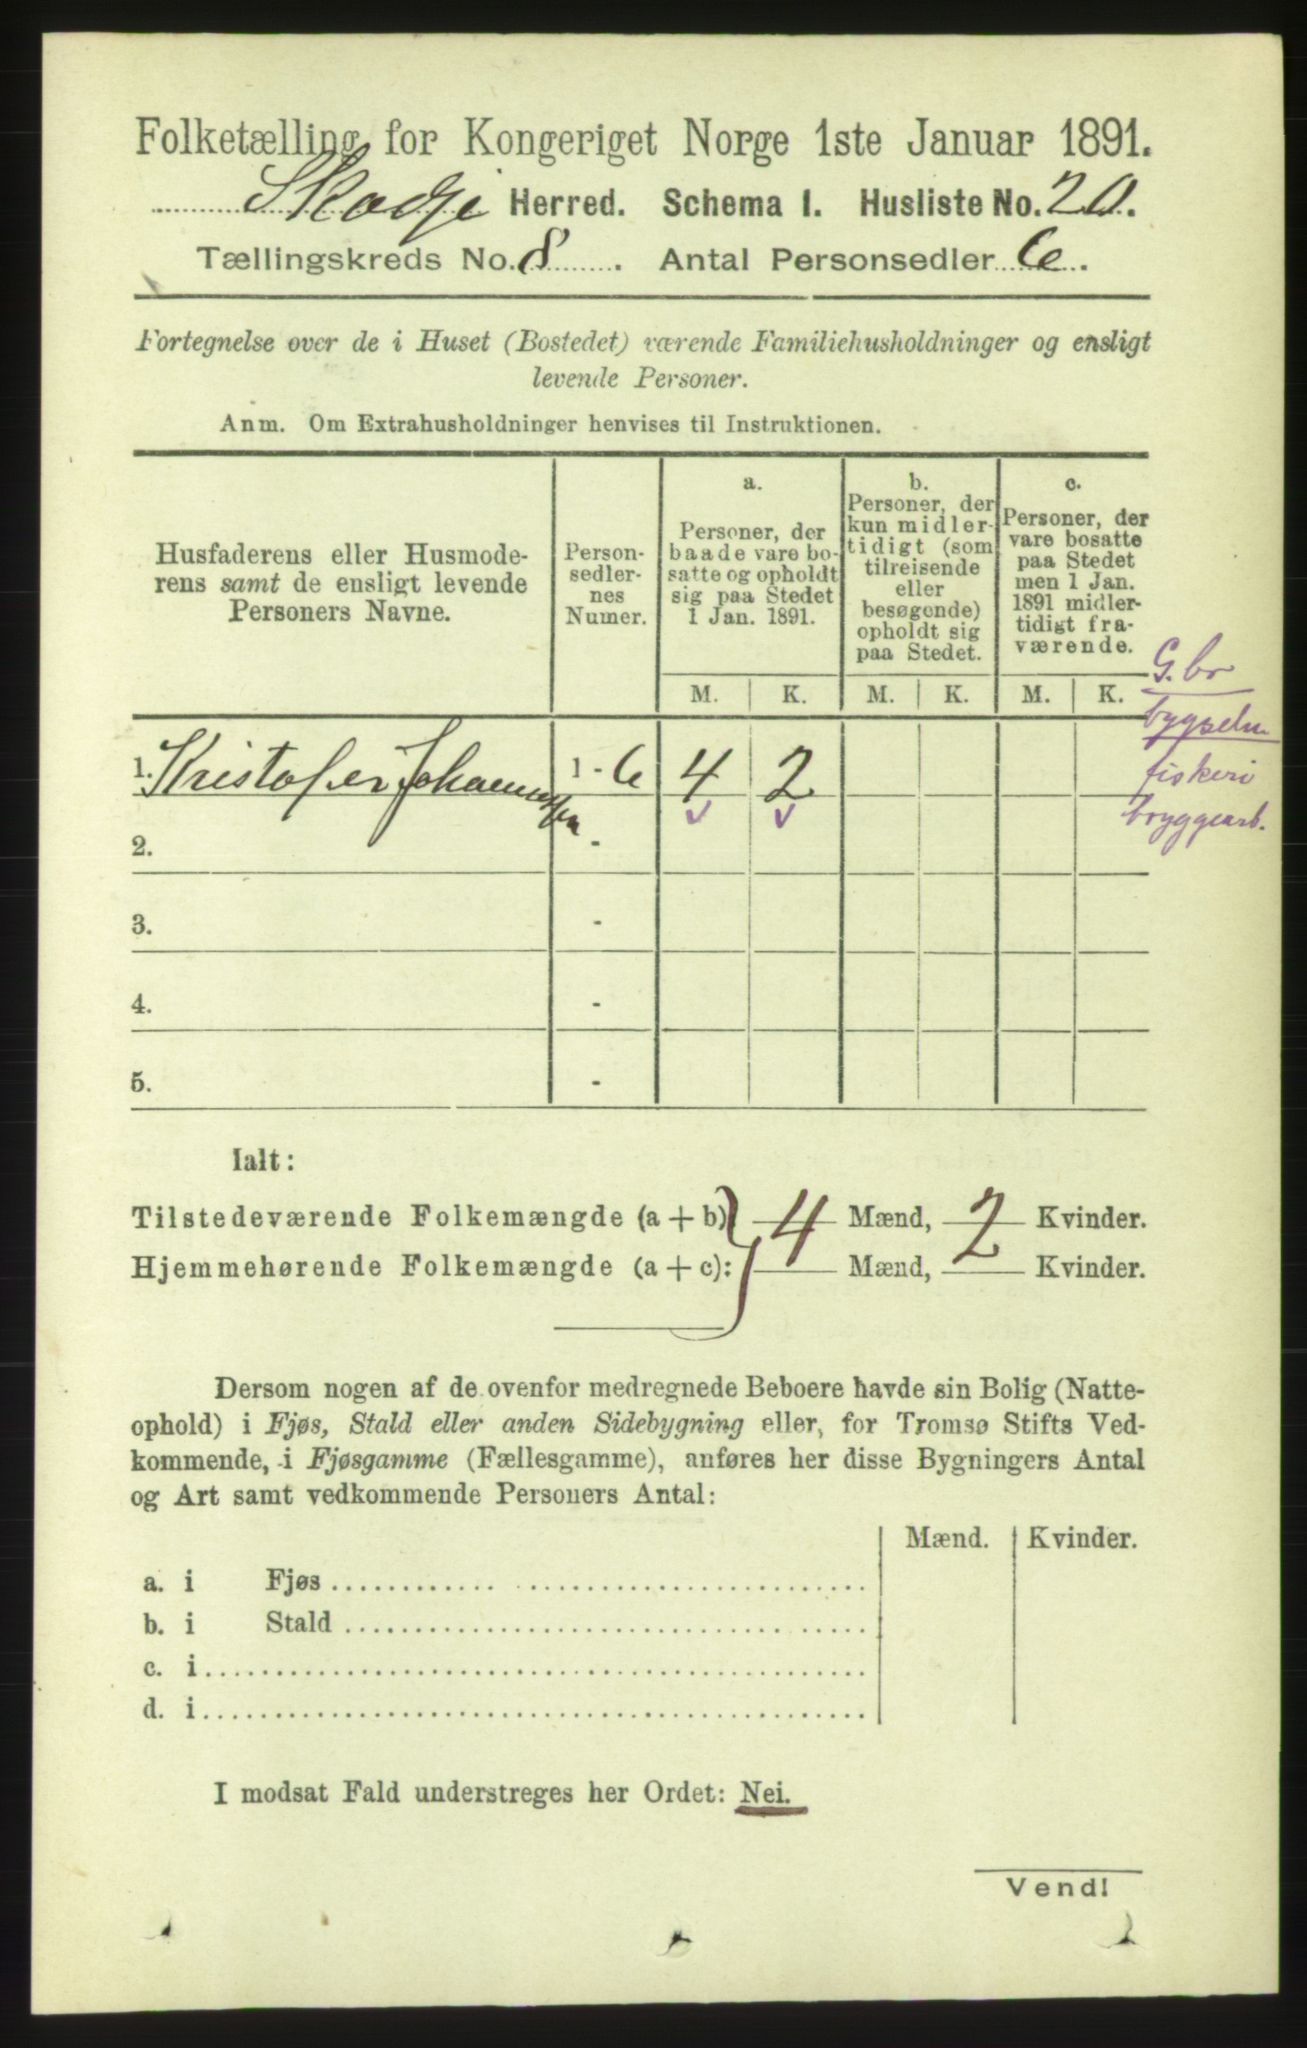 Folketælling for Kongeriget Norge 1ste Januar 1891.
Skodje Herred. Schema 1. Husliste No. 20.
Tællingskreds No. 8. Antal Personsedler 6.
Fortegnelse over de i Huset (Bostedet) værende Familiehusholdninger og ensligt
levende Personer.
Anm. Om Extrahusholdninger henvises til Instruktionen.
Husfaderens eller Husmode-
rens samt de ensligt levende
Personers Navne.
Person-
sedler-
nes
Numer.
a.
Personer, der
baade vare bo-
satte og opholdt
sig paa Stedet
1 Jan. 1891.
b.
Personer, der
kun midler-
tidigt (som
tilreisende
eller
besøgende)
opholdt sig
paa Stedet.
c.
Personer, der
vare bosatte
paa Stedet
men 1 Jan.
1891 midler-
tidigt fra-
værende.
M. K. M. K. M. K.
G.br
bygseln.
fiskeri
bryggearb.
1. Kristofer Johannessen 1 - 6 4 2
2. -
3. -
4. -
5. -
Ialt:
Tilstedeværende Folkemængde (a + b) 4 Mænd, 2 Kvinder.
Hjemmehørende Folkemængde (a + c): Mænd, Kvinder.
Dersom nogen af de ovenfor medregnede Beboere havde sin Bolig (Natte-
ophold) i Fjøs, Stald eller anden Sidebygning eller, for Tromsø Stifts Ved-
kommende, i Fjøsgamme (Fællesgamme), anføres her disse Bygningers Antal
og Art samt vedkommende Personers Antal:
Mænd. Kvinder.
a. i Fjøs
b. i Stald
c. i
d. i
I modsat Fald understreges her Ordet: Nei.
Vend!